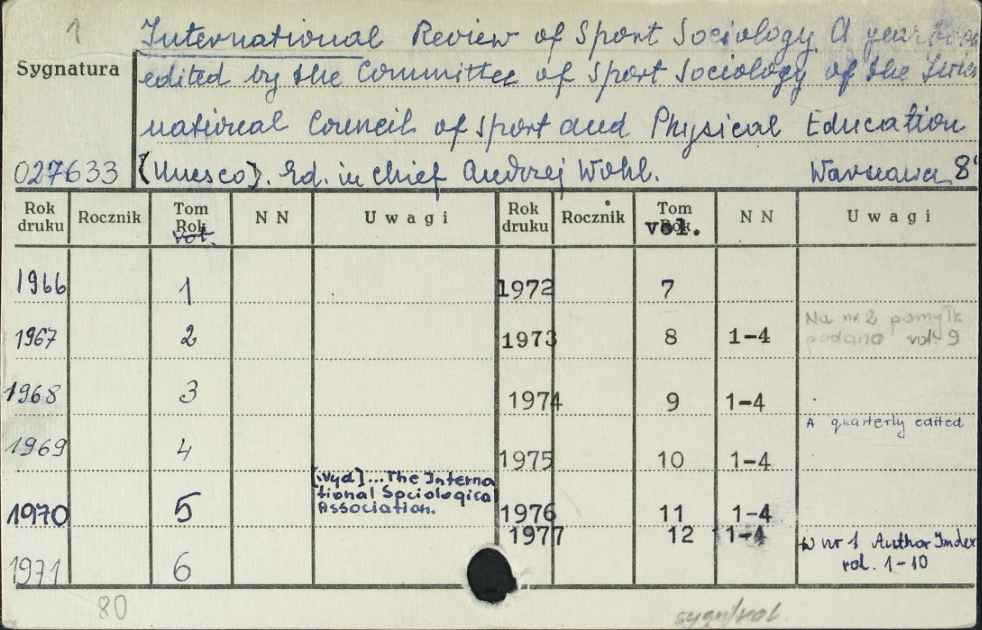 1
International Review of Sport Sociology. A yearbook
Sygnatura
edited by the Committee of Sport Sociology of the Inter
national Council of Sport and Physical Education
027633
(Unesco). Ed. in chief Andrzej Wohl. Warszawa 8°
Rok druku Rocznik Tom Rok vol. NN Uwagi Rok druku Rocznik Tom Rok vol. NN Uwagi
1966 1 1972 7
1967 2 1973 8 1-4 Na nr 2 pomyłk podano vol. 9
1968 3 1974 9 1-4
A quarterly edited
1969 4 1975 10 1-4
[Wyd] ... The Interna
tional Sociologica
Association.
1970 5 1976 11 1-4
1977 12 1-4 W nr 1 Author Index
vol. 1-10
1971 6
80